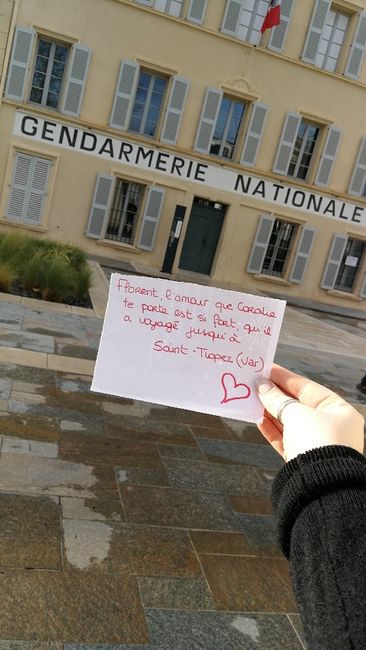 GENDARMERIE NATIONALE
Florent, l'amour que Coralie
te porte est si fort, qu'il
a voyagé jusqu'à
Saint-Tropez (Var)